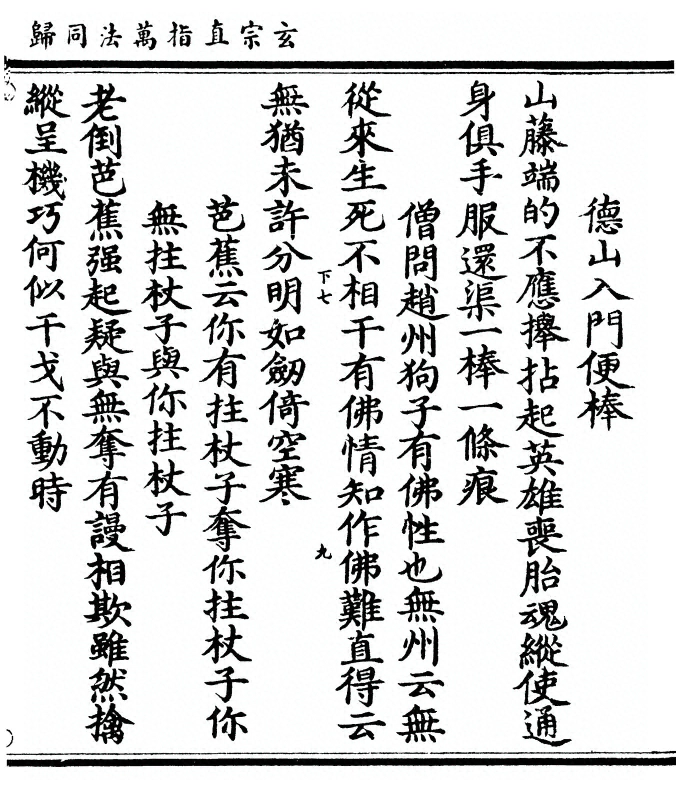 玄宗直指萬法同歸
德山入門便棒
山藤端的不應攑拈起英雄喪胎魂縱使通
身俱手服還渠一棒一條痕
僧問趙州狗子有佛性也無州云無
從來生死不相干有佛情知作佛難直得云
下七
九
無猶未許分明如劒倚空寒
芭蕉云你有拄杖子奪你拄杖子你
無拄杖子與你拄杖子
老倒芭蕉强起疑與無奪有謾相欺雖然擒
縱呈機巧何似干戈不動時